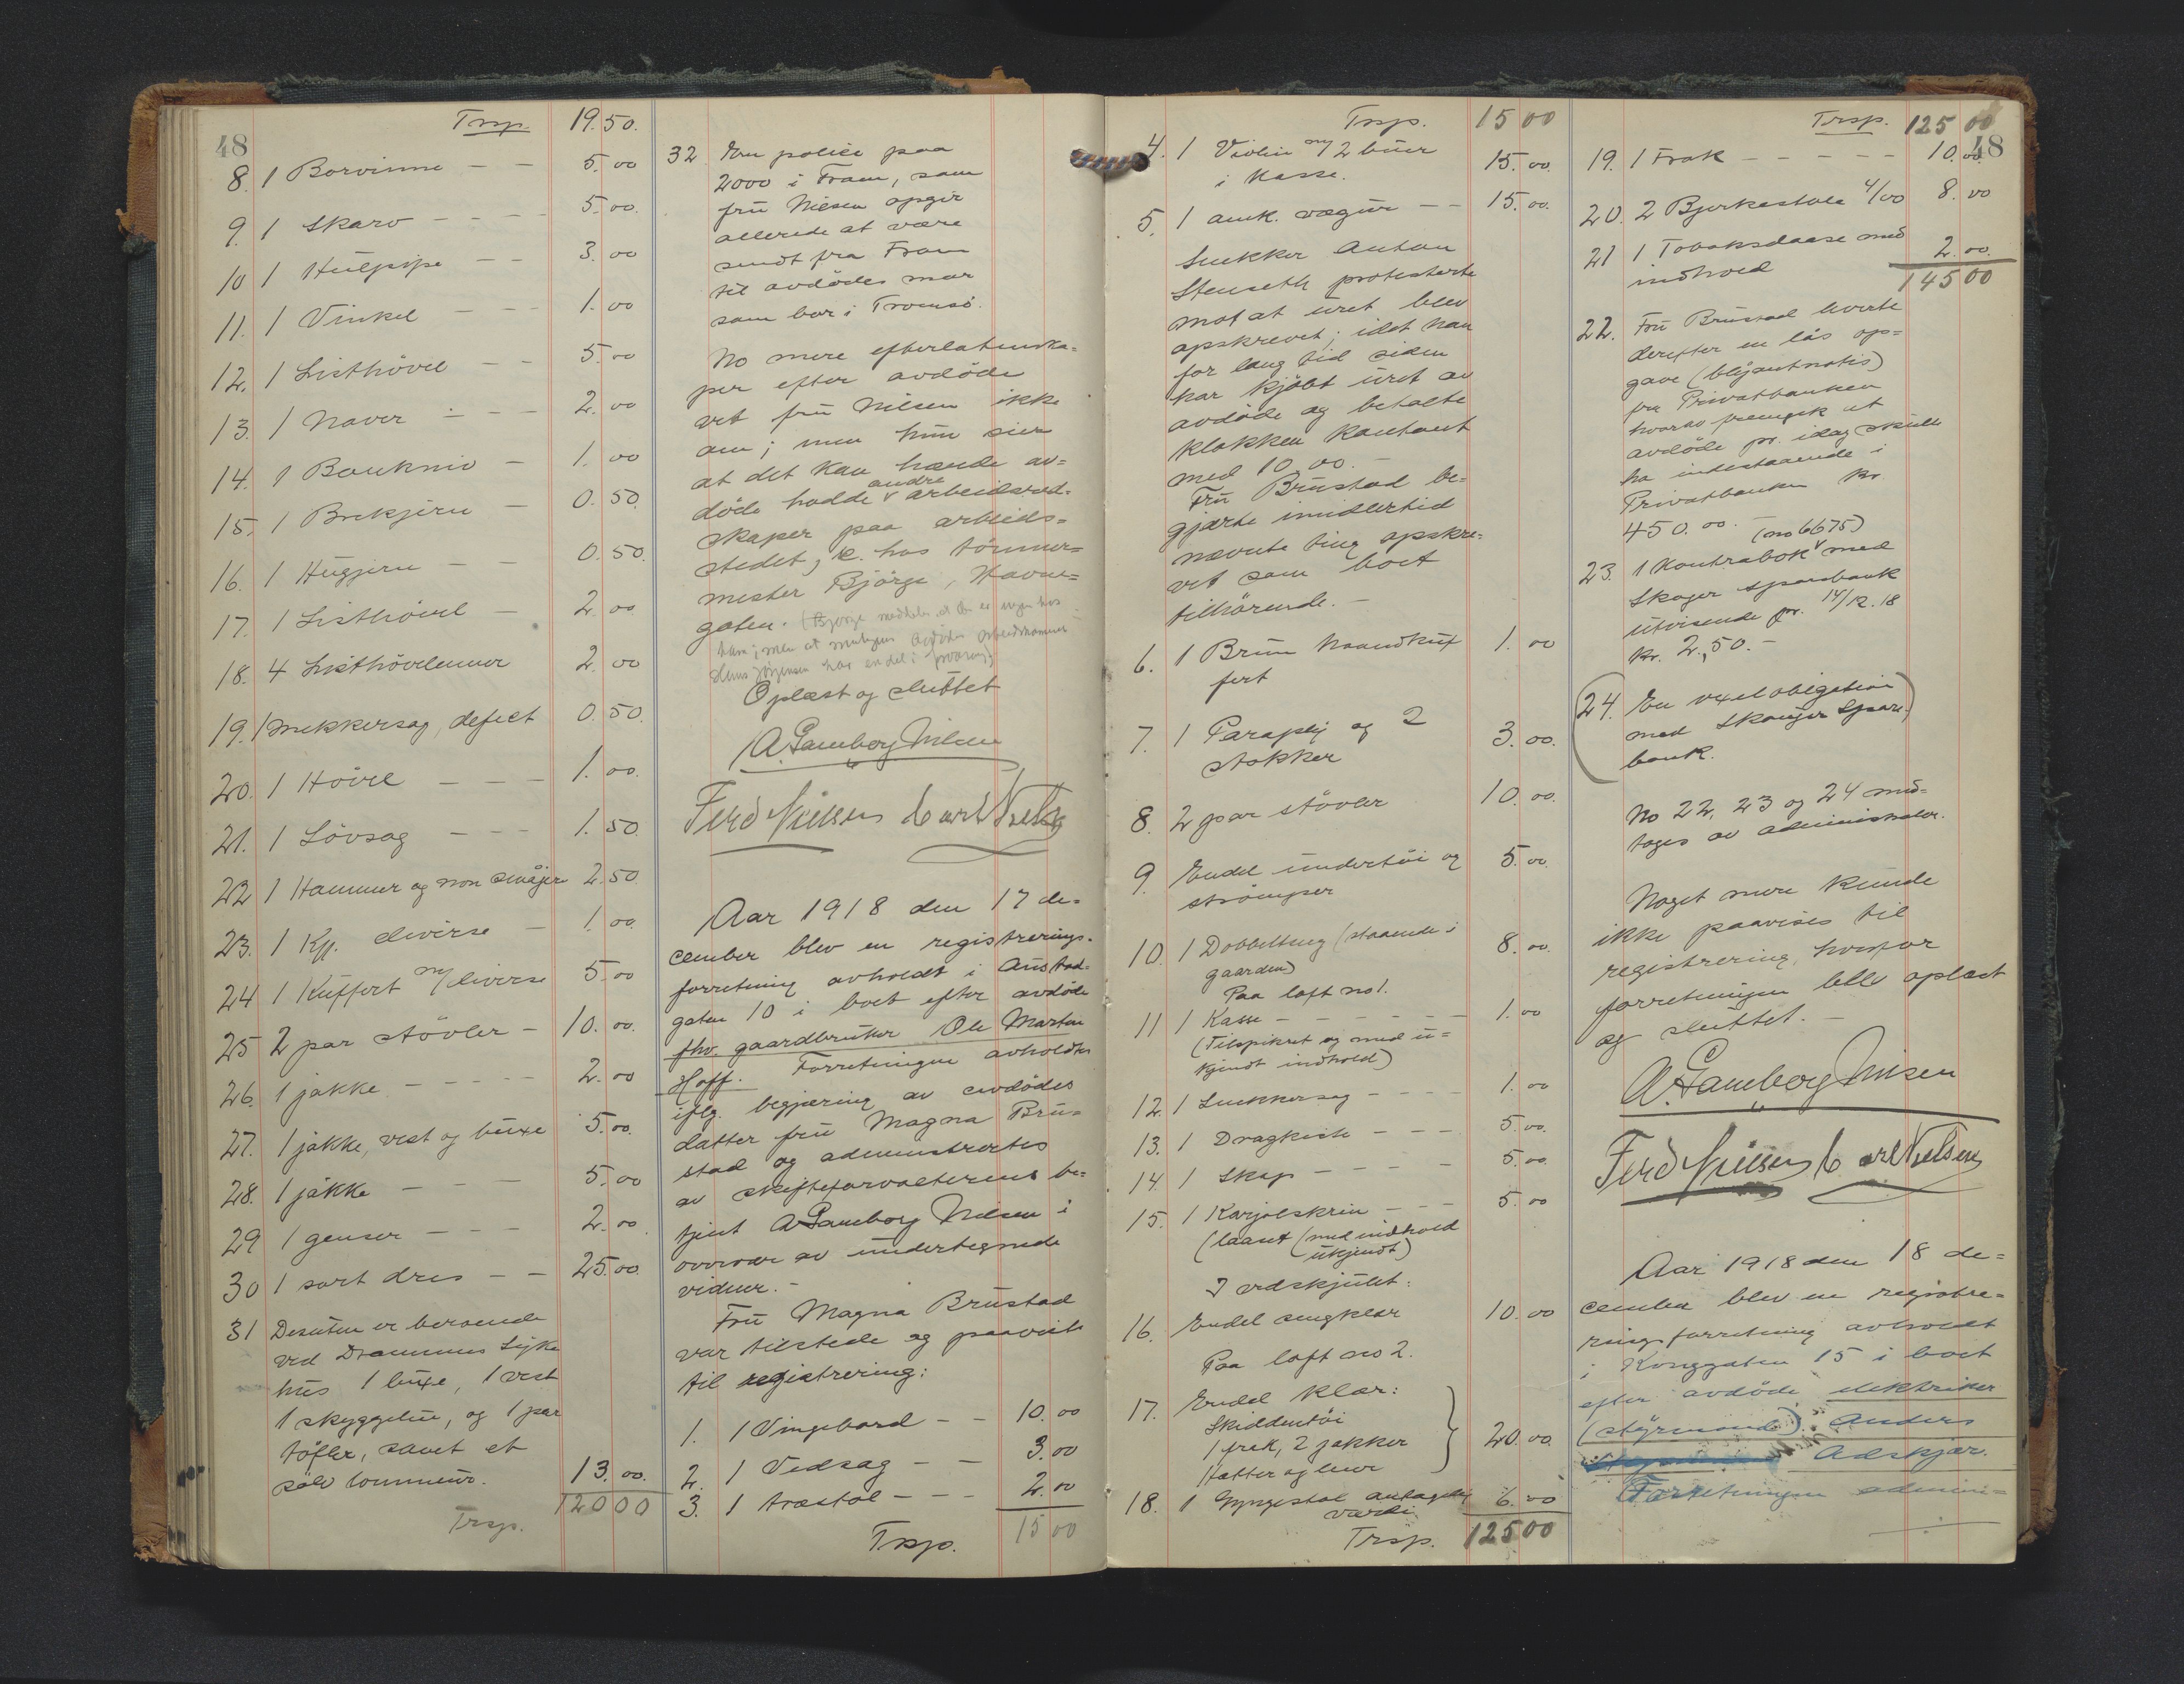 48
Trsp. 19.50.
8. 1 Borvinne - - 5.00
9. 1 Skarv - - - 5.00.
10 1 Hulpipe - - 3.00
11. 1 Vinkel - - - 1.00
12. 1 Listhövel - - 5.00
13. 1 Naver - - - 2.00
14. 1 Baukniv - 1.00
15. 1 Brekjern - 0.50.
16. 1 Hugjern - - 0.50.
17. 1 Listhövel - 2.00.
18. 4 Listhövlemmer 2.00
19. 1 snekkersag, defect 0.50.
20. 1 Hövel - - - 1.00.
21. 1 Lövsag - - - 1.50.
22 1 Hammer og non småjern 2.50
23. 1 Kp. diverse - 1.00
24 1 Kuffert m/ diverse 5.00
25 2 par stövler - 10.00.
26. 1 jakke - - - - - 2.00
27. 1 jakke, vest og buxe 5.00.
28. 1 jakke - - - 5.00
29 1 genser - - - 2.00.
30 1 sort dres - - 25.00.
31 Desuten er beroende
ved Drammens Syke
hus 1 buxe, 1 vest
1 skyggelue, og 1 par
töfler, samt et
sölv lommeur. 13.00.
Trsp. 120 00
32 En police paa
2000 i Fram, som
fru Nilsen opgir
allerede at være
sendt fra Fram
til avdödes mor
som bor i Tromsö.
No mere efterlatenska=
per efter avdöde
vet fru Nilsen ikke
om; men hun sier
at det kan hænde av=
andre
döde hadde v arbeidsred=
skaper paa arbeids=
stedet, hos tömmer=
mester Björge, Havne=
gaten. (Bjorge meddeler at der er ingen hos
ham; men at muligens avdödes arbeidskamerat
Hans Jörgensen har endel i forvaring)
Oplæst og sluttet
A. Gamborg Nilsen
Ferd Nilsen Carl Nielsen
Aar 1918 den 17 de=
cember blev en registrerings=
forretning avholdt i Austad=
gaten 10 i boet efter avdöde
fhv. gaardbruker Ole Martin
Hoff. Forretningen avholdtes
iflg. begjæring av avdödes
datter fru Magna Bru=
stad og administrertes
av skifteforvalterens be=
tjent A Gamborg Nilsen i
overvær av undertegnede
vidner.-
Fru Magna Brustad
var tilstede og paaviste
til registrering:
1. 1 Vingebord - - 10.00
2. 1 Vedsag - - 3.00
3. 1 træstol - - - 2.00
Trsp. 15 00
Trsp. 15 00
4. 1 Violin m/ 2 buer
i Kasse. 15.00.
5. 1 amk. vægur - - 15.00.
Snekker Anton
Stenseth protesterte
mot at uret blev
opskrevet, idet han
for lang tid siden
har kjöbt uret av
avdöde og betalte
klokken kontant
med 10.00.-
Fru Brustad be=
gjærte imidlertid
nævnte ting opskre=
vet som boet
tilhörende.-
6. 1 Brun haandkuf
fert 1.00
7. 1 Paraply og 2
stokker 3.00.
8. 2 par stövler 10.00.
9. Endel undertöi og
strömper 5.00.
10. 1 Dobbeltseng (staaende i
gaarden) 8.00.
Paa loft no 1.
11 1 Kasse - - - - - - 1.00
(Tilspikret og med u=
kjendt indhold)
12. 1 Snekkersag - - - - 1.00
13. 1 Dragkiste - - - 5.00.
14. 1 Skap - - - - - 5.00.
15. 1 Karjolskrin - - - 5.00
(laaset (med indhold
ukjendt)
I vedskjulet:
16. Endel sengklær 10.00
Paa loft no 2.
17. Endel klær:
Skiddentöi
1 frak, 2 jakker
Hatter og huer 20.00.
18. 1 Gyngestol antagelig
værdi 6.00
Trsp. 125 00
Trsp. 125 00
48
19. 1 Frak - - - - - 10.00.
20. 2 Bjerkestole 4/00 8.00
21 1 Tobaksdaase med
indhold 2.00.
145 00
22. Fru Brustad leverte
derefter en lös op=
gave (blyantnotis)
fra Privatbanken
hvorav fremgik at
avdöde pr. idag skulle
ha indestaaende i
Privatbanken kr
450.00.-
(no 6675)
23. 1 Kontrabok v med
Skoger Sparebank
utvisende pr. 14/12.18
kr. 2,50.-
(24. En vexelobligation
med Skoger Spare=)
bank.
No 22, 23 og 24 mod=
tages av administrator.
Noget mere kunde
ikke paavises til
registrering, hvorfor
forretningen blev oplæst
og sluttet.-
A. Gamborg Nilsen
Ferd Nilsen Carl Nielsen
Aar 1918 den 18 de=
cember blev en registre=
ringsforretning avholdt
i Konggaten 15 i boet
efter avdöde elektriker
(styrmand) Anders
Adskjær.
Forretningen admini=